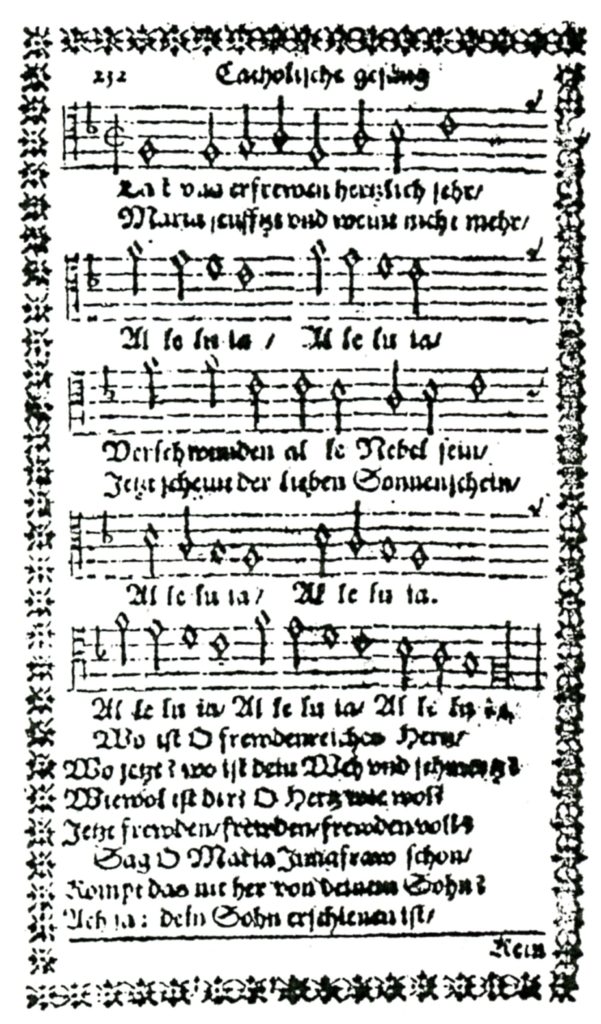 232 Catholische gesäng
Laßt vns erfrewen hertzlich sehr/
Maria seufftzt vnd weint nicht mehr/
Al le lu ia / Al le lu ia/
Verschwunden al le Nebel sein/
Jetzt scheint der lieben Sonnenschein/
Al le lu ia/ Al le lu ia.
Al le lu ia/ Al le lu ia/ Al le lu ia.
Wo ist O frewdenreiches Hertz/
Wo jetzt? wo ist dein Weh vnd schmertz?
Wiewol ist dir? O Hertz wie wol?
Jetzt frewden/frewden/frewden voll?
Sag O Maria Jungfraw schon/
Kompt das nit her von deinem Sohn?
Ach ja: dein Sohn erschienen ist/
Kein